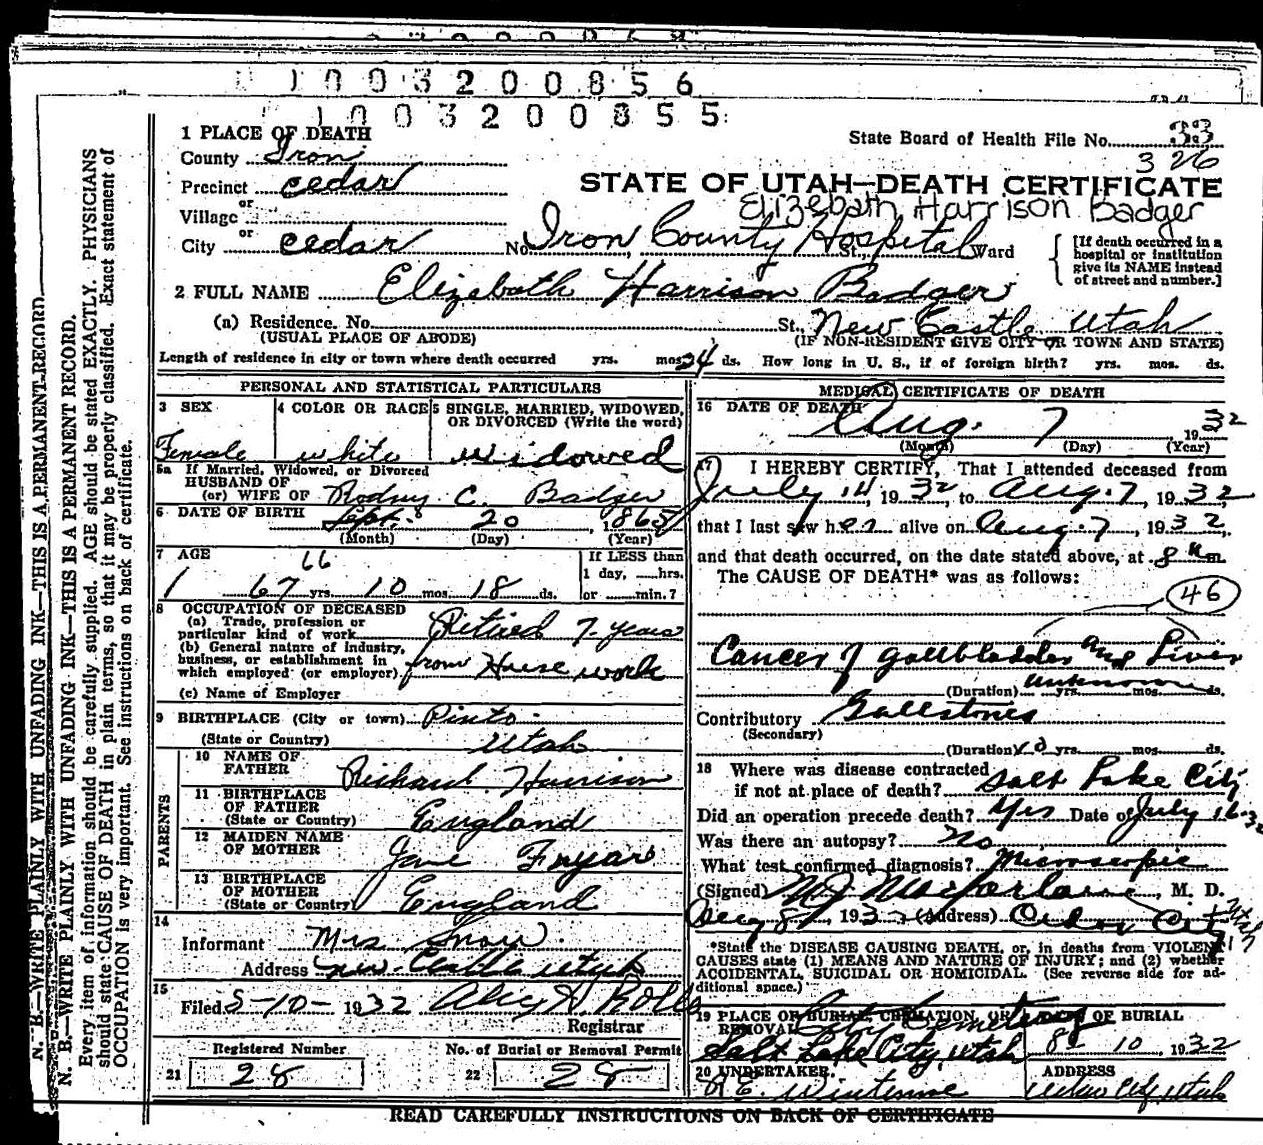 1 0 0 3 2 0 0 8 5 6
1 0 0 3 2 0 0 8 5 5
1 PLACE OF DEATH
State Board of Health File No. 33
326
County Iron
Precinct cedar
STATE OF UTAH—DEATH CERTIFICATE
Elizebath Harrison Badger
or
Village
or
City cedar No. Iron County Hospital St., Ward
[If death occurred in a hospital or institution give its NAME instead of street and number.]
2 FULL NAME Elizebath Harrison Badger
(a) Residence. No. St., New Castle Utah
(USUAL PLACE OF ABODE) (IF NON-RESIDENT GIVE CITY OR TOWN AND STATE)
Length of residence in city or town where death occurred yrs. mos. 24 ds. How long in U. S., if of foreign birth? yrs. mos. ds.
PERSONAL AND STATISTICAL PARTICULARS
3 SEX 4 COLOR OR RACE 5 SINGLE, MARRIED, WIDOWED, OR DIVORCED (Write the word)
Female white widowed
5a If Married, Widowed, or Divorced
HUSBAND OF
(or) WIFE OF Rodny C. Badger
6 DATE OF BIRTH Sept. 20 1865
(Month) (Day) (Year)
7 AGE 66 If LESS than
1 day, hrs.
67 yrs. 10 mos. 18 ds. or min.?
8 OCCUPATION OF DECEASED
(a) Trade, profession or
particular kind of work Retired 7 years
(b) General nature of industry,
business, or establishment in
which employed (or employer) from House work
(c) Name of Employer
9 BIRTHPLACE (City or town) Pinto
(State or Country) Utah
PARENTS
10 NAME OF FATHER Richard Harrison
11 BIRTHPLACE OF FATHER
(State or Country) England
12 MAIDEN NAME OF MOTHER Jane
13 BIRTHPLACE OF MOTHER
(State or Country) England
14
Informant Mrs
Address New Castle Utah
15
Filed 8-10- 1932
Registrar
Registered Number No. of Burial or Removal Permit
21 28 22 28
MEDICAL CERTIFICATE OF DEATH
16 DATE OF DEATH Aug. 7 1932
(Month) (Day) (Year)
17 I HEREBY CERTIFY, That I attended deceased from
July 14, 1932 to Aug. 7 1932
that I last saw her alive on Aug. 7, 1932,
and that death occurred, on the date stated above, at 8 m.
The CAUSE OF DEATH* was as follows:
46
Cancer of gallbladder and Liver
(Duration) unknown yrs. mos. ds.
Contributory Gallstones
(Secondary)
(Duration) yrs. mos. ds.
18 Where was disease contracted
if not at place of death? Salt Lake City
Did an operation precede death? Yes Date of July 16-32
Was there an autopsy? No
What test confirmed diagnosis? Microscopic
(Signed) Macfarlane, M. D.
Aug 8, 1932 (Address) Cedar City Utah
*State the DISEASE CAUSING DEATH, or, in deaths from VIOLENT
CAUSES state (1) MEANS AND NATURE OF INJURY; and (2) whether
ACCIDENTAL, SUICIDAL OR HOMICIDAL. (See reverse side for additional space.)
19 PLACE OF BURIAL, CREMATION, OR REMOVAL DATE OF BURIAL
City Cemetery
Salt Lake City, Utah 8- 10, 1932
20 UNDERTAKER. ADDRESS
Cedar City, Utah
READ CAREFULLY INSTRUCTIONS ON BACK OF CERTIFICATE
N. B.—WRITE PLAINLY WITH UNFADING INK—THIS IS A PERMANENT RECORD
N. B.—WRITE PLAINLY WITH UNFADING INK—THIS IS A PERMANENT RECORD.
Every item of information should be carefully supplied. AGE should be stated EXACTLY. PHYSICIANS
should state CAUSE OF DEATH in plain terms, so that it may be properly classified. Exact statement of
OCCUPATION is very important. See instructions on back of certificate.